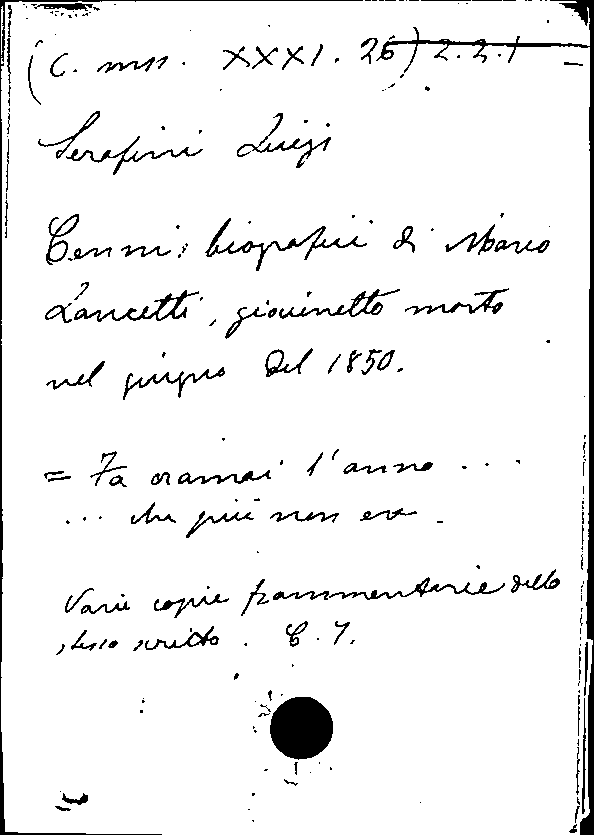 (C. mss. XXXI. 26) 2.2.1
Serafini Luigi
Cenni biografici di Marco
Lancetti, giovinetto morto
nel giugno del 1850.
= Fa oramai l'anno ...
... che più non era.
Varie copie frammentarie dello
stesso scritto. C. 7.